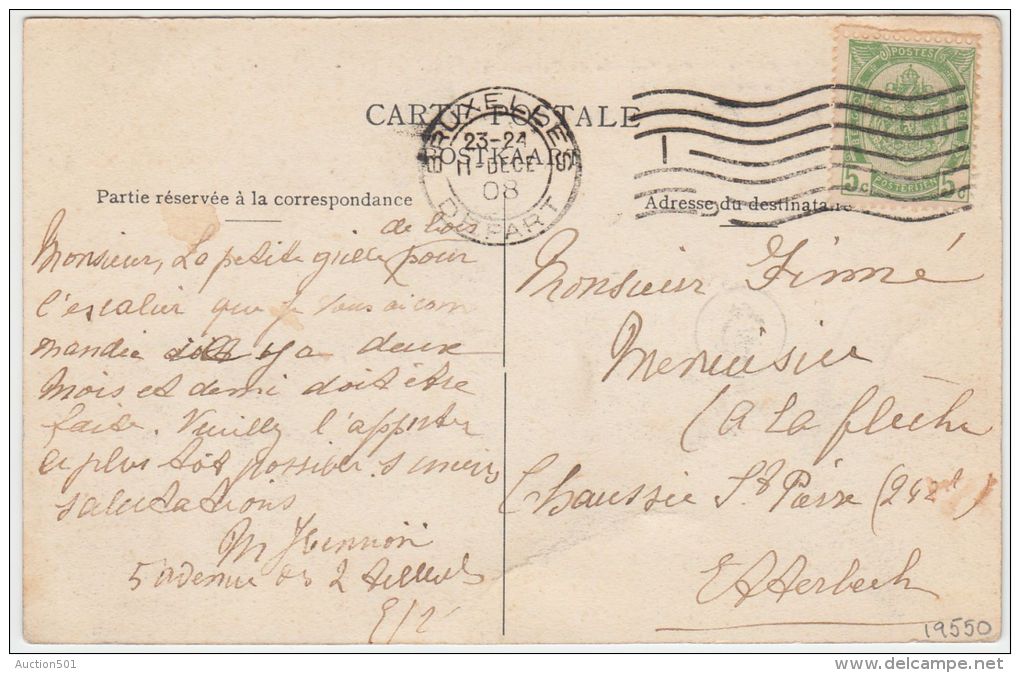 CARTE POSTALE
POSTKAART
BRUXELLES
23-24
11-DECE
08
DEPART
POSTES
5c
5c
POSTERIJEN
Partie réservée à la correspondance
Adresse du destinataire
de bois
Monsieur, La petite grille pour
l'escalier que je vous ai com
mandée il y a deux
mois et demi doit être
faite. Veuillez l'apporter
le plus tôt possible. Sincères
salutations
M Hennion
5 avenue des 2 tilleuls
E/V
Monsieur Finné
Menuisier
(a la flèche
Chaussée St Pierre (242 )
Etterbeek
19550
Auction501
www.delcampe.net